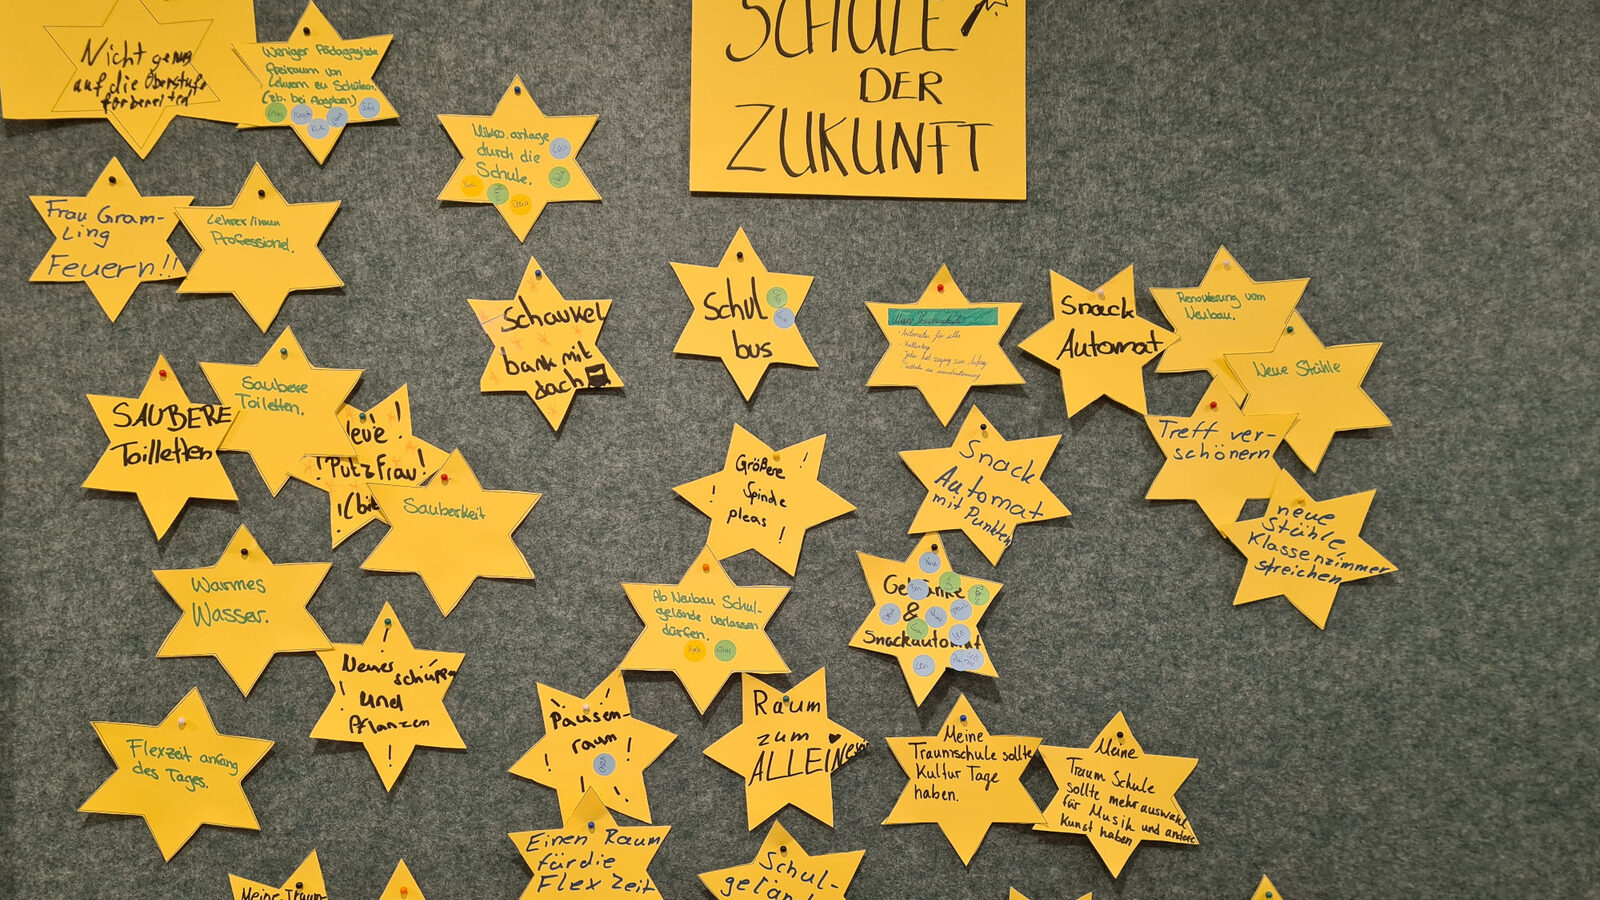 SCHULE
DER
ZUKUNFT
Nicht genug
auf die Oberstufe
forbereited
Weniger Pädagogische
Freiraum von
Lehrern zu Schülern.
(zb. bei Abgaben)
Mikro.anlage
durch die
Schule.
Frau Gram-
ling
Feuern!!
Lehrer/innen
Professionel.
Schaukel
bank mit
dach
Schul
bus
Automaten für alle
Snack
Automat
Renovierung vom
Neubau.
Neue Stühle
SAUBERE
Toilletten
Saubere
Toiletten.
!
!Putzfrau!
Sauberkeit
Größere !
! Spinde
pleas !
Snack
Automat
mit Punkten
Treff ver-
schönern
neue
Stühle,
Klassenzimmer
streichen
Warmes
Wasser.
Ab Neubau Schul-
gelände verlassen
dürfen.
&
Snackautomat
!
Neues
!
und
Pflanzen
!
Flexzeit anfang
des Tages.
Pausen-
raum
! ! ! !
Raum
zum
ALLEIN
Meine
Traumschule sollte
Kultur Tage
haben.
Meine
Traum Schule
sollte mehr auswahl
für Musik und andere
Kunst haben
Einen Raum
für die
Flex Zeit
Schul-
Meine Traum-